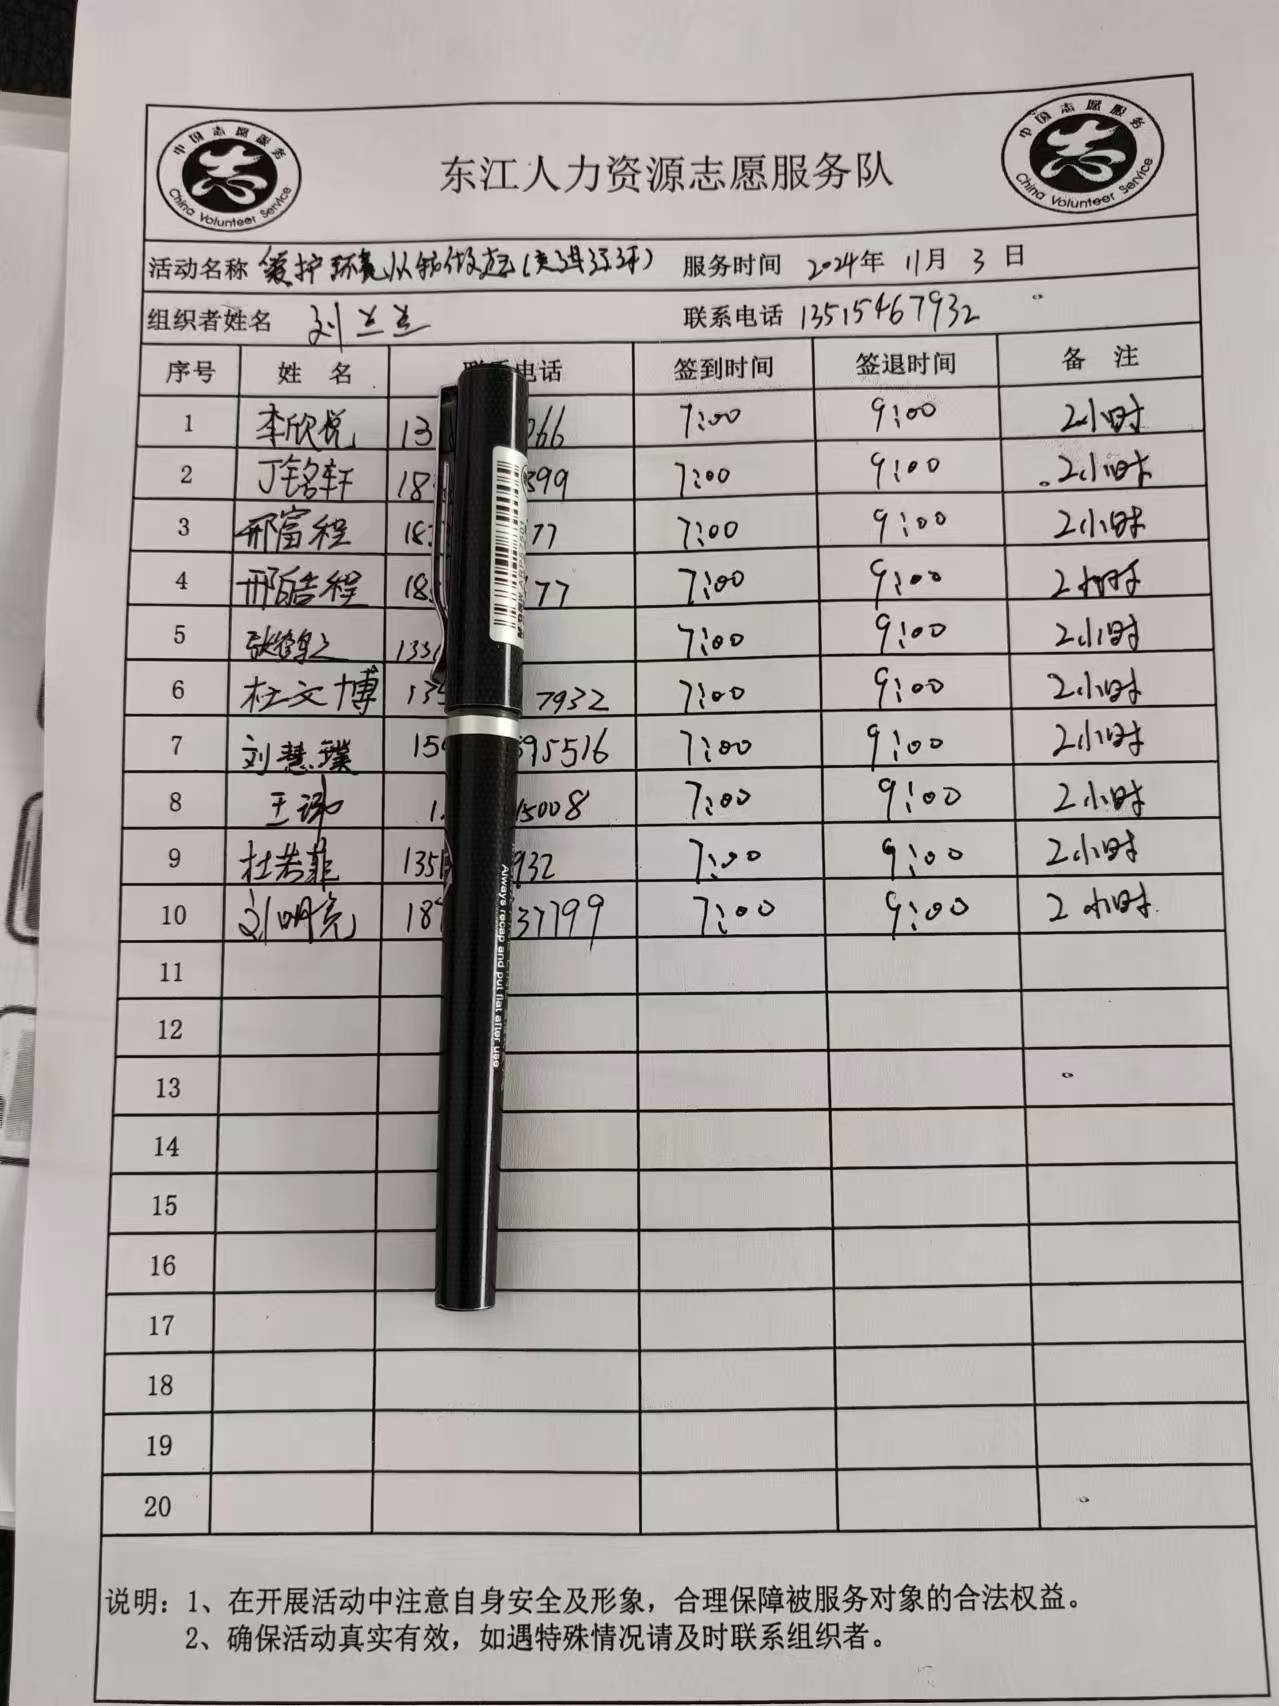 中国志愿服务
China Volunteer Service
东江人力资源志愿服务队
中国志愿服务
China Volunteer Service
活动名称 爱护环境从我做起 服务时间 2024年 11月 3 日
组织者姓名 刘兰兰 联系电话 13515467932
序号 姓 名 电话 签到时间 签退时间 备 注
1 李欣悦 13 066 7:00 9:00 2小时
2 丁铭轩 18 399 7:00 9:00 2小时
3 邢富程 18 77 7:00 9:00 2小时
4 邢皓程 18 77 7:00 9:00 2小时
5 张鹤之 133 7:00 9:00 2小时
6 杜文博 135 7932 7:00 9:00 2小时
7 刘慧璞 15 95516 7:00 9:00 2小时
8 王 1 15008 7:00 9:00 2小时
9 杜若菲 135 932 7:00 9:00 2小时
10 刘明亮 18 37799 7:00 9:00 2小时
Always recap and put flat after use
11
12
13
14
15
16
17
18
19
20
说明：1、在开展活动中注意自身安全及形象，合理保障被服务对象的合法权益。
2、确保活动真实有效，如遇特殊情况请及时联系组织者。